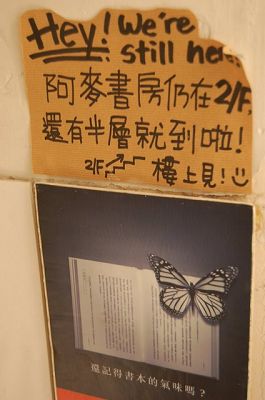 Hey! We're
still here!
阿麥書房仍在2/F,
還有半層就到啦!
2/F 樓上見!
還記得書本的氣味嗎?